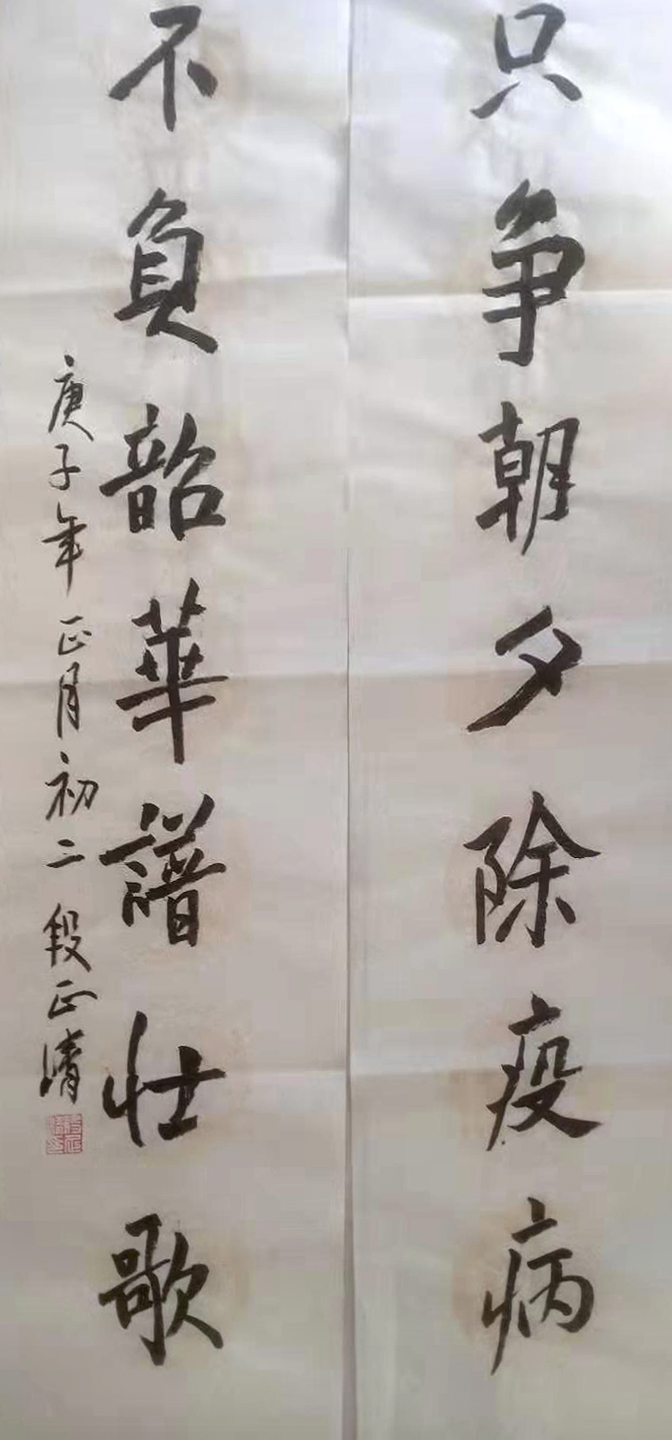 只争朝夕除疫病
不負韶華譜壮歌
庚子年正月初二段正清